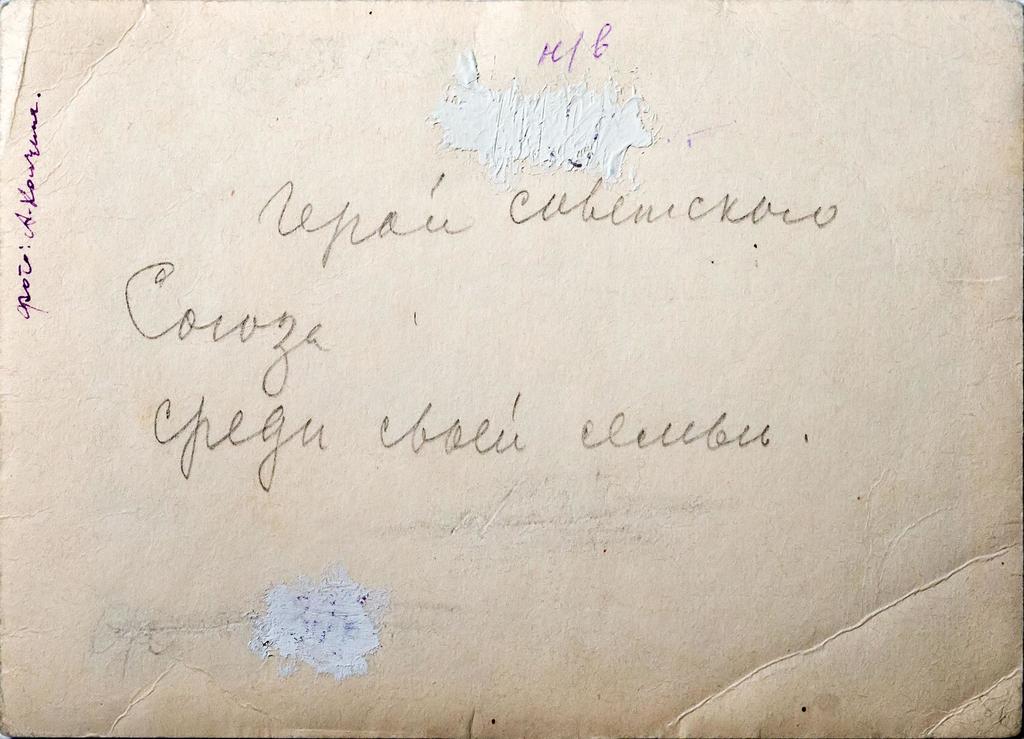 н/в
Герой советского
Союза
среди своей семьи.
фото: А.